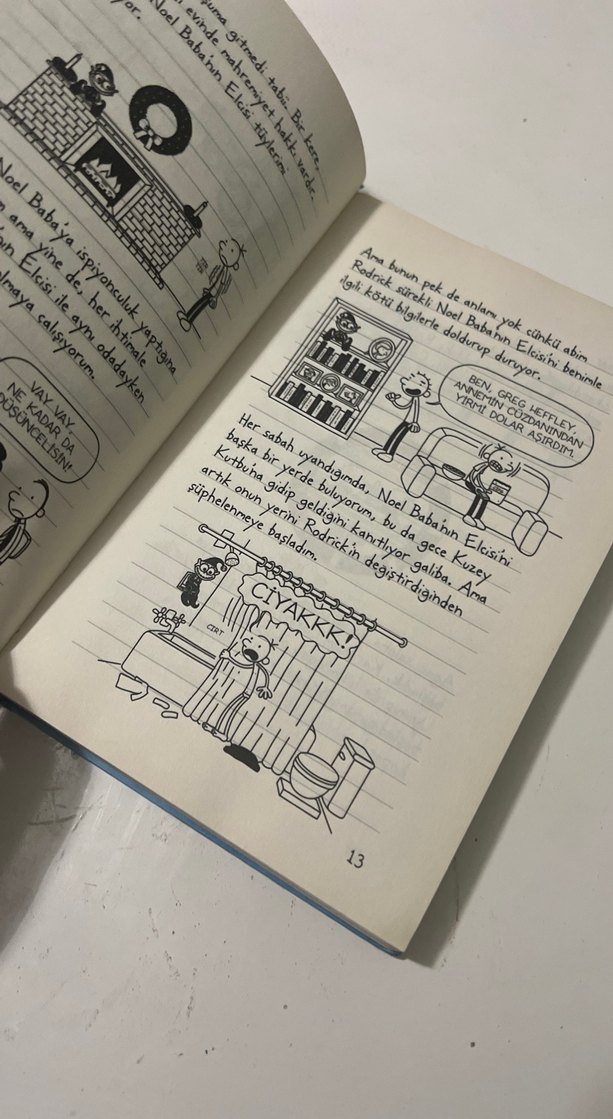 uma gitmedi tabii. Bir kere,
evinde mahremiyet hakkı vardır.
Noel Baba'nın Elcisi tüylerimi
yor.
Noel Baba'ya ispiyonculuk yaptığına
ama yine de, her ihtimale
Elcisi ile aynı odadayken
olmaya çalışıyorum.
VAY, VAY,
NE KADAR DA
DÜŞÜNCELİSİN!
Ama bunun pek de anlamı yok çünkü abim
Rodrick sürekli Noel Baba'nın Elcisi'ni benimle
ilgili kötü bilgilerle doldurup duruyor.
BEN, GREG HEFFLEY,
ANNEMİN CÜZDANINDAN
YİRMİ DOLAR AŞIRDIM.
Her sabah uyandığımda, Noel Baba'nın Elcisi'ni
başka bir yerde buluyorum, bu da gece Kuzey
Kutbu'na gidip geldiğini kanıtlıyor galiba. Ama
artık onun yerini Rodrick'in değiştirdiğinden
şüphelenmeye başladım.
CİYAKKK!
CIRT
13